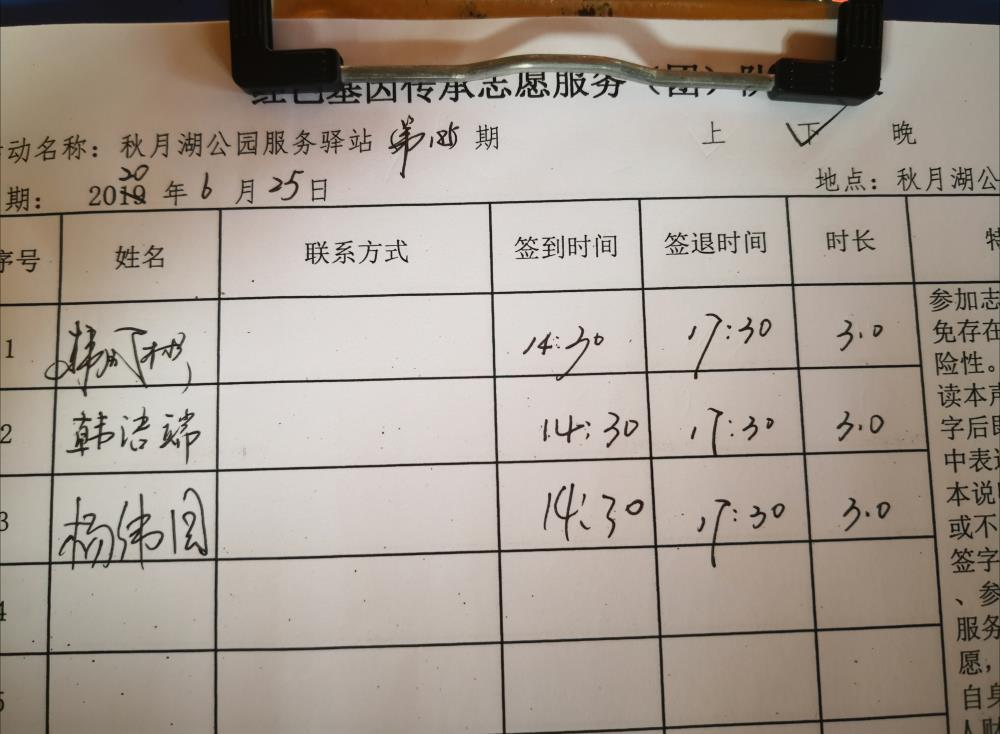 红色基因传承志愿服务（团）队
动名称：秋月湖公园服务驿站 第185期 上 下 晚
期： 2020年6月25日 地点：秋月湖公
序号 姓名 联系方式 签到时间 签退时间 时长 特
1 14:30 17:30 3.0
2 韩洁瑞 14:30 17:30 3.0
3 杨伟国 14:30 17:30 3.0
4
5
参加志
免存在
险性。
读本声
字后即
中表述
本说明
或不
签字
、参
服务
愿，
自身
人财